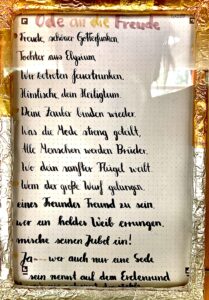 Ode an die Freude
Freude, schöner Götterfunken,
Tochter aus Elysium,
Wir betreten feuertrunken,
Himmlische, dein Heiligtum.
Deine Zauber binden wieder,
Was die Mode streng geteilt,
Alle Menschen werden Brüder,
Wo dein sanfter Flügel weilt.
Wem der große Wurf gelungen,
eines Freundes Freund zu sein,
wer ein holdes Weib errungen,
mische seinen Jubel ein!
Ja— wer auch nur eine Seele
sein nennt auf dem Erdenrund